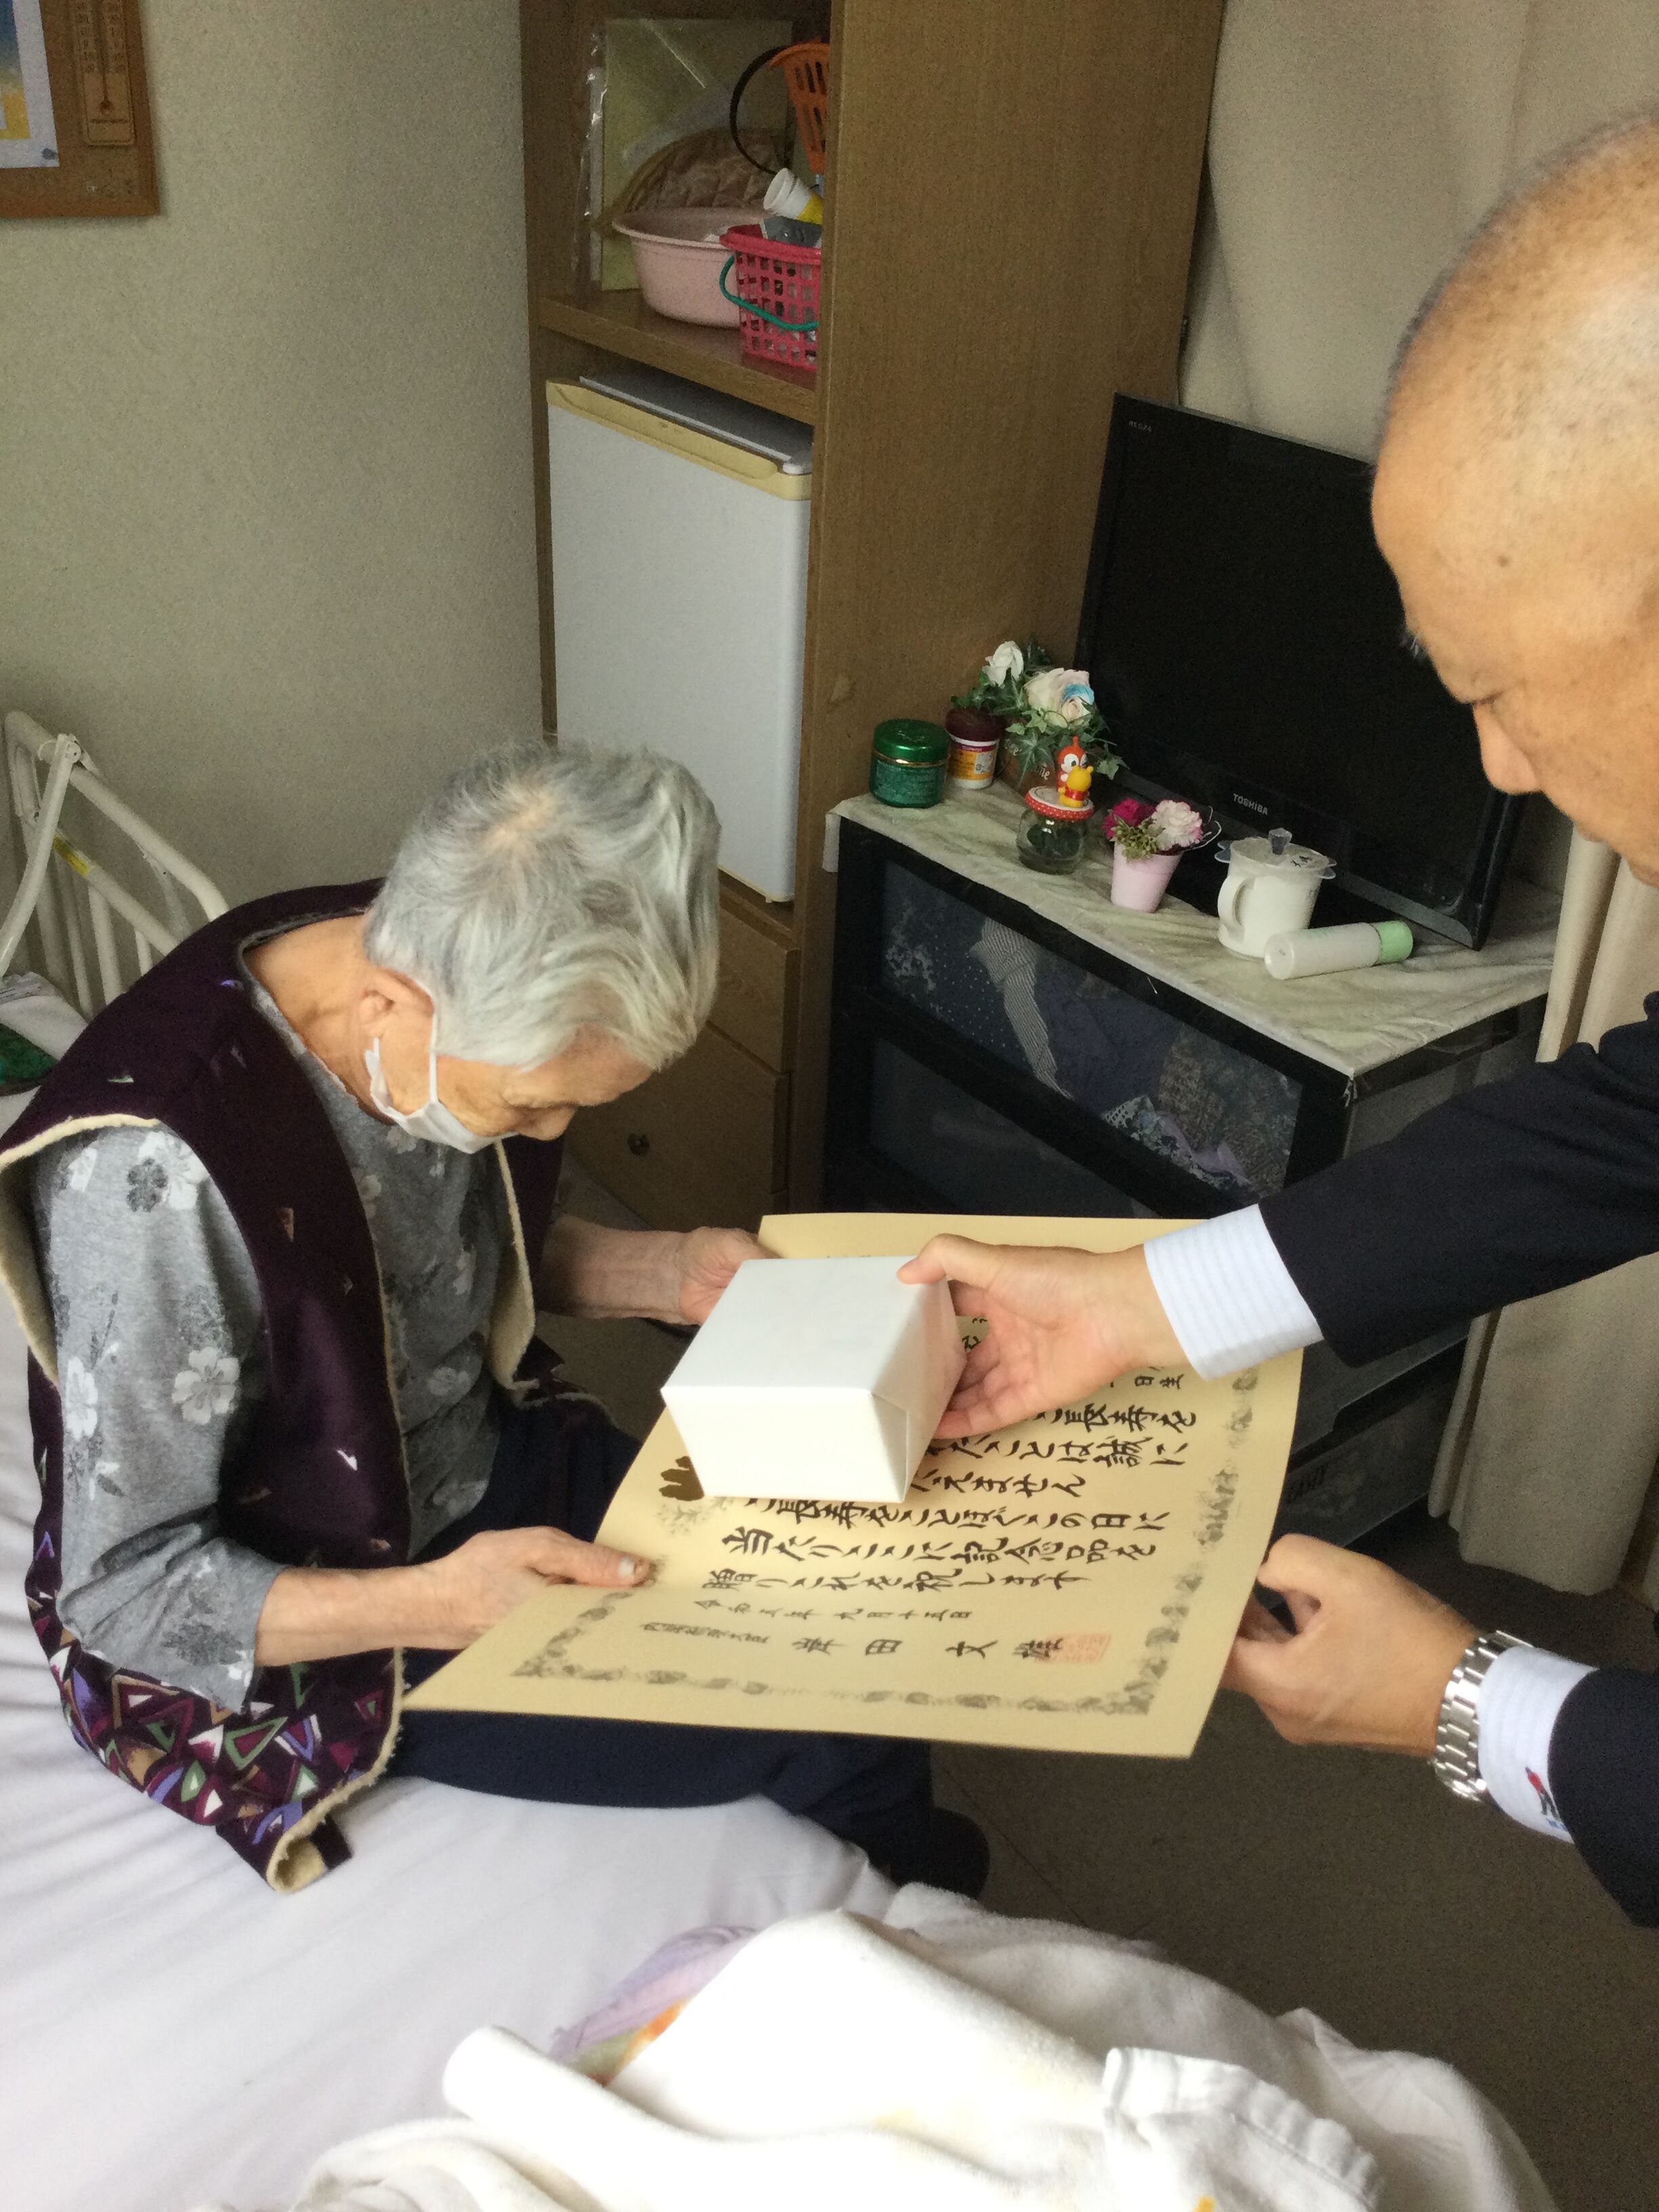 日生
ご長寿を
たことは誠に
えません
ご長寿をことほぐこの日に
当たりここに記念品を
贈りこれを祝します
令和五年九月十五日
内閣総理大臣 岸田文雄
TOSHIBA
REGZA